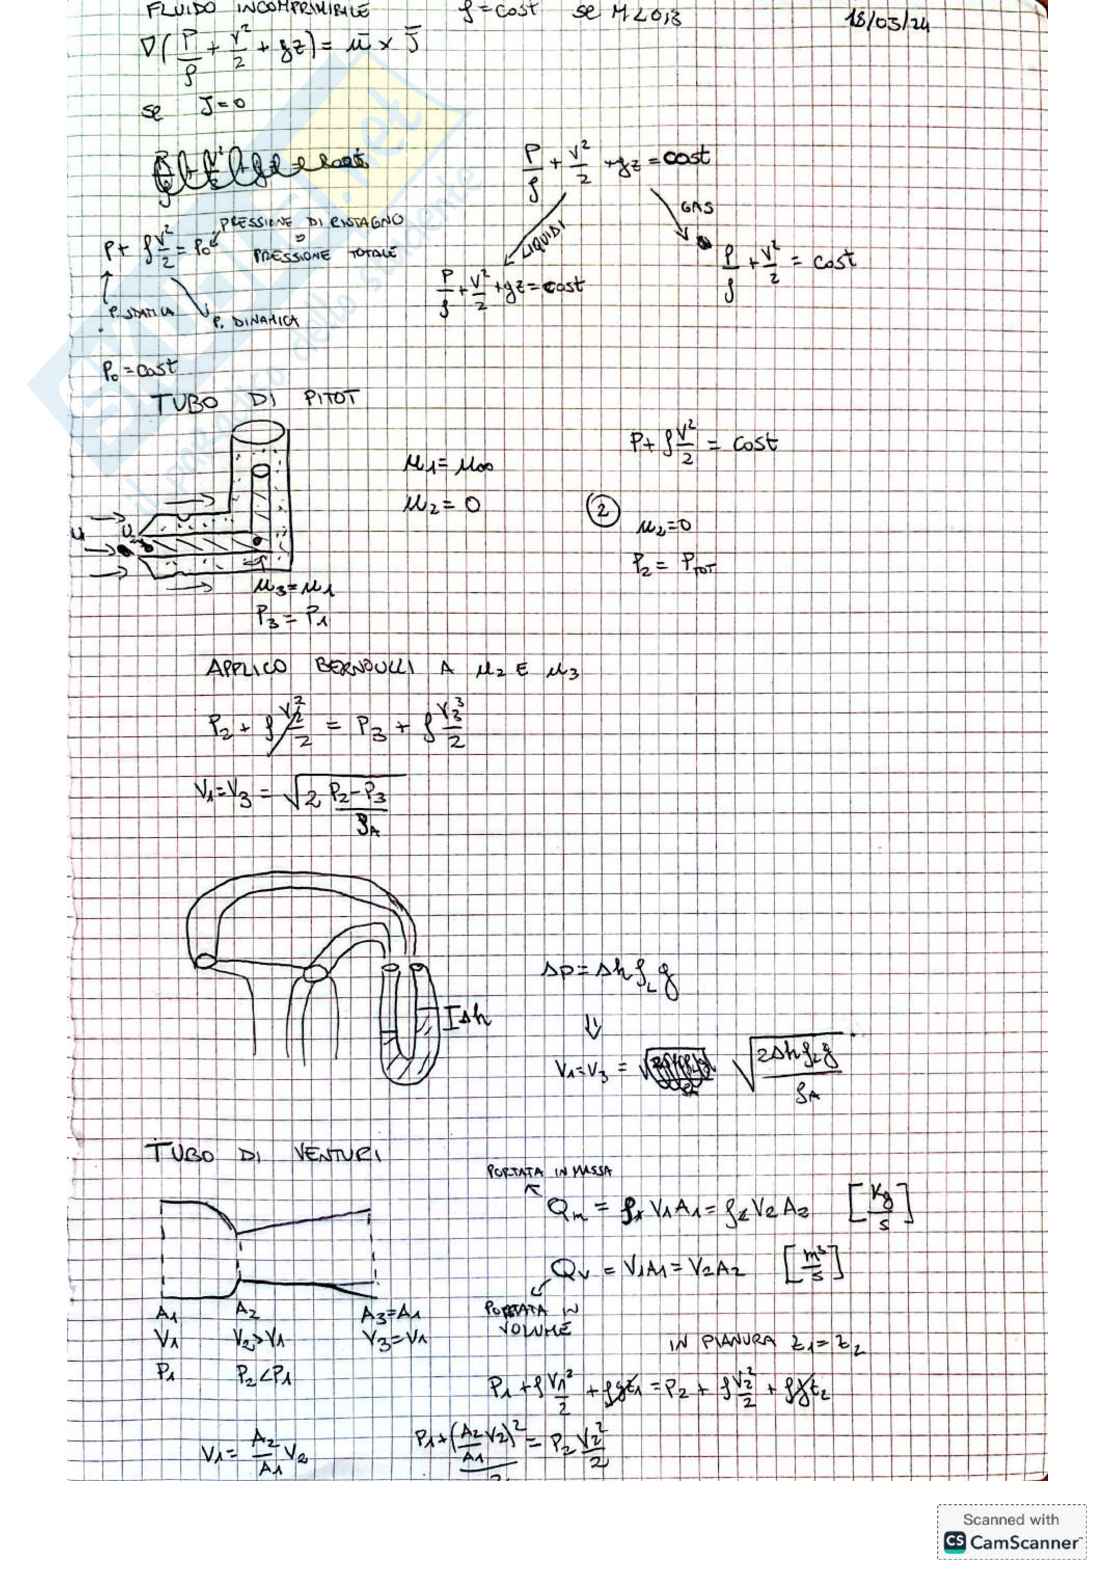 FLUIDO INCOMPRIMIBILE ρ = cost se M < 0,3 18/03/24
∇(P/ρ + V²/2 + gz) = u̅ × J̅
se J = 0
P/ρ + V²/2 + gz = cost
GAS
LIQUIDI
P/ρ + V²/2 = cost
P/ρ + V²/2 + gz = cost
PRESSIONE DI RISTAGNO
=
PRESSIONE TOTALE
P + ρ V²/2 = P₀
P. STATICA
P. DINAMICA
P₀ = cost
TUBO DI PITOT
P + ρ V²/2 = cost
u₁ = u∞
u₂ = 0
②
u₂ = 0
P₂ = P_TOT
u
u₃ = u₁
P₃ = P₁
APPLICO BERNOULLI A u₂ E u₃
P₂ + ρ V₂²/2 = P₃ + ρ V₃³/2
V₁ = V₃ = √(2 (P₂ - P₃)/ρ_A)
Δh
Δp = Δh ρ_L g
⇓
V₁ = V₃ = √(2Δh ρ_L g / ρ_A)
TUBO DI VENTURI
PORTATA IN MASSA
Q_m = ρ₁ V₁ A₁ = ρ₂ V₂ A₂ [Kg/s]
Q_V = V₁A₁ = V₂A₂ [m³/s]
PORTATA IN
VOLUME
A₁ A₂ A₃ = A₁
V₁ V₂ > V₁ V₃ = V₁
P₁ P₂ < P₁
IN PIANURA z₁ = z₂
P₁ + ρ V₁²/2 + ρgz₁ = P₂ + ρ V₂²/2 + ρgz₂
V₁ = A₂/A₁ V₂
P₁ + (A₂/A₁ V₂)²/2 = P₂ V₂²/2
SKUOLA.net
il paradiso dello studente
Scanned with
CS CamScanner